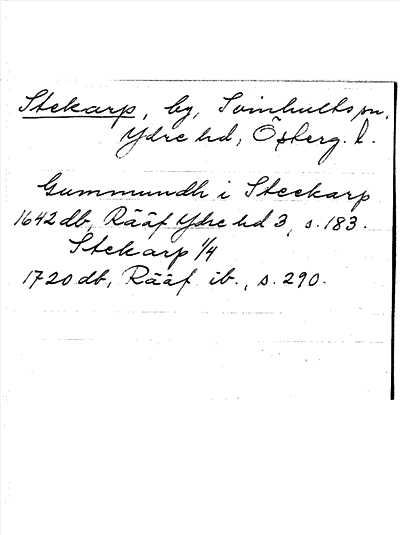 Stekarp, by, Svinhults sn,
Ydre hd, Österg. l.
Gummundh i Steekarp
1642 db, Rääf Ydre hd 3, s. 183.
Stekarp 1/4
1720 db, Rääf ib., s. 290.